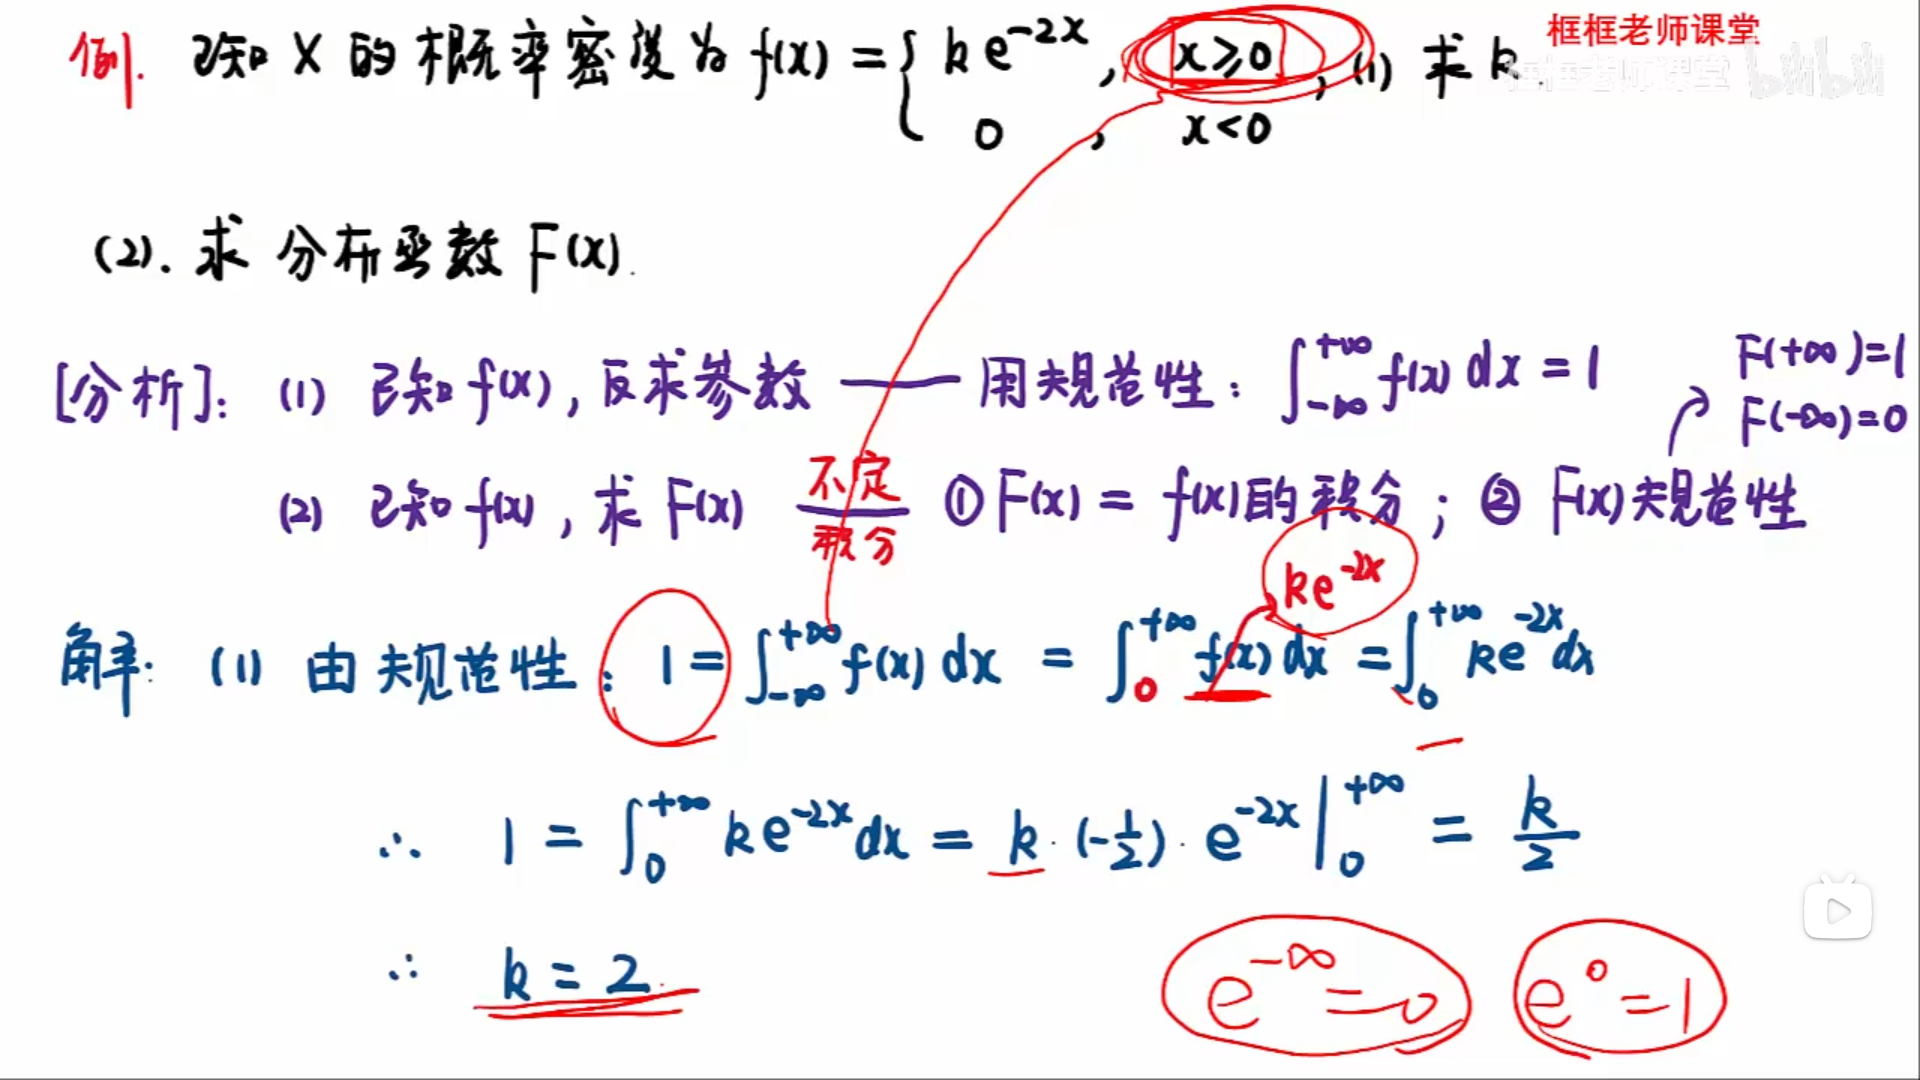 框框老师课堂
框框老师课堂 bilibili
例. 已知 X 的概率密度为 f(x) = { ke^{-2x}, x≥0 ; (1) 求 k.
0 , x<0
(2). 求 分布函数 F(x).
[分析]: (1) 已知 f(x), 反求参数 —— 用规范性: ∫_{-∞}^{+∞} f(x) dx = 1
F(+∞)=1
F(-∞)=0
(2) 已知 f(x), 求 F(x) 不定积分 ① F(x) = f(x)的积分; ② F(x)规范性
ke^{-2x}
解: (1) 由规范性: 1 = ∫_{-∞}^{+∞} f(x) dx = ∫_0^{+∞} f(x) dx = ∫_0^{+∞} ke^{-2x} dx
∴ 1 = ∫_0^{+∞} ke^{-2x} dx = k·(-1/2)·e^{-2x} |_0^{+∞} = k/2
∴ k = 2.
e^{-∞} = 0 e^0 = 1